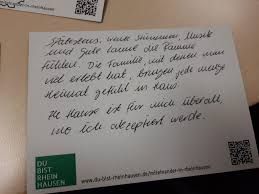 Spätestens, wenn Stimmen, Musik
und gute Laune die Räume
füllen. Die Familie, mit denen man
viel erlebt hat, bringen jede menge
Heimat gefühl in Haus.
Zu Hause ist für mich überall,
wo ich akzeptiert werde.
DU
BIST
RHEIN
HAUSEN
www.du-bist-rheinhausen.de/miteinander-in-rheinhausen